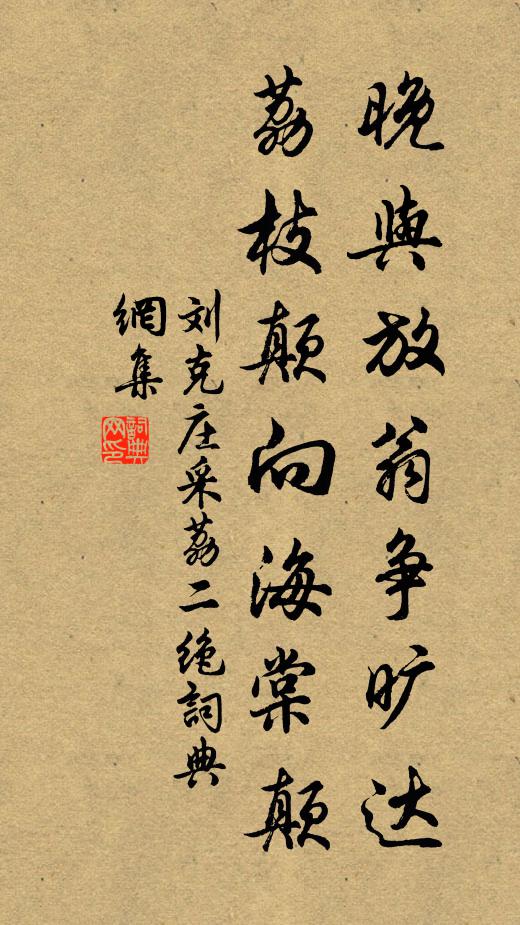 晚與放翁争旷达
荔枝颠向海棠颠
刘克庄采荔二绝詞典
網集
詞典
网印